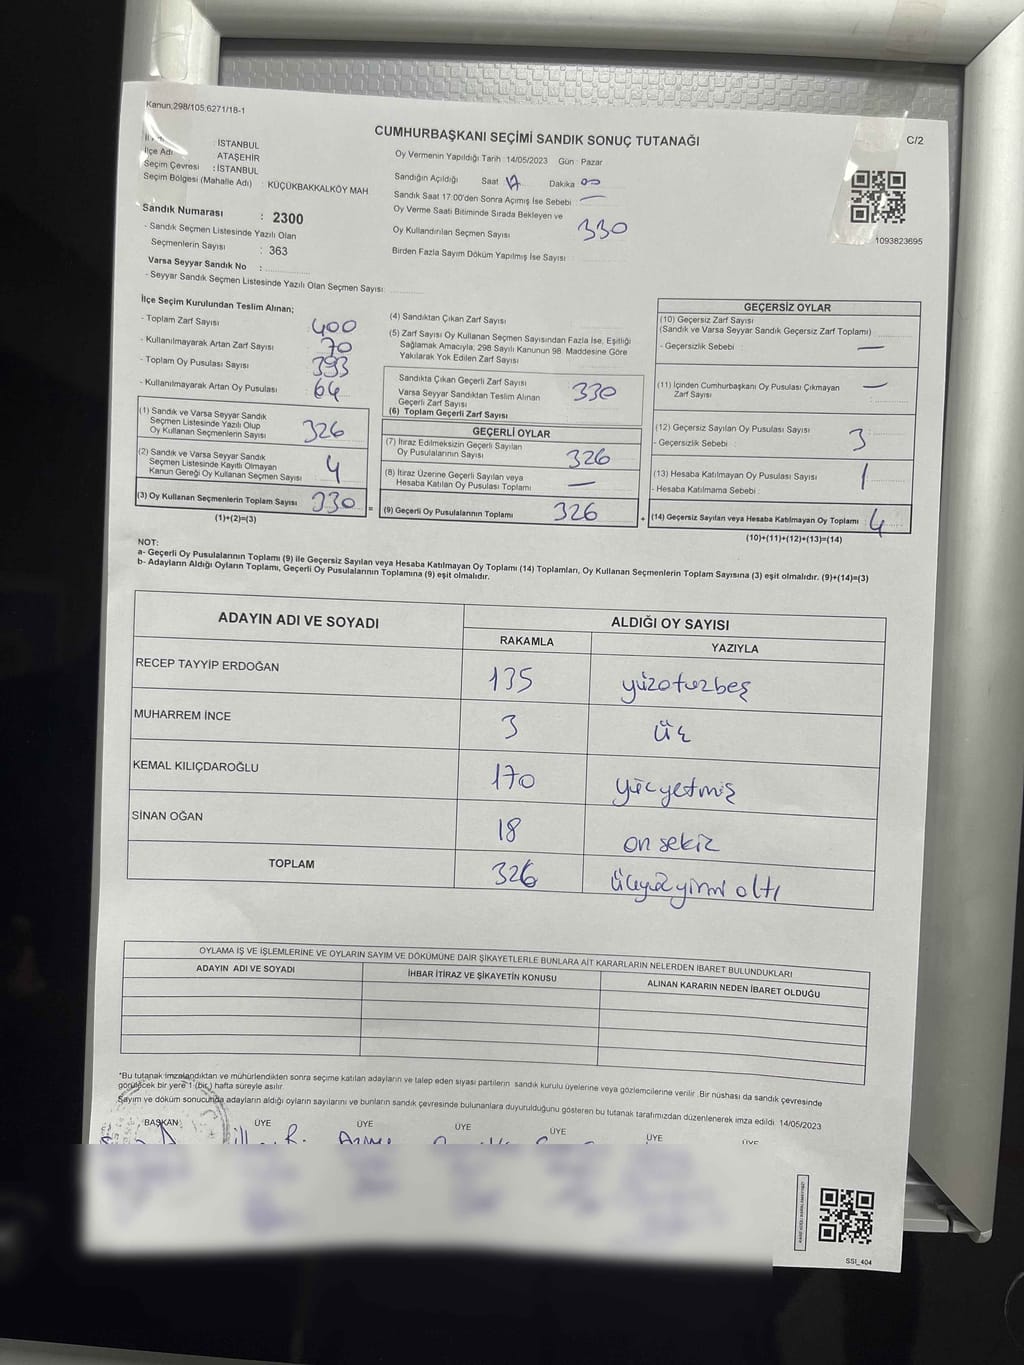 Kanun;298/105,6271/18-1
CUMHURBAŞKANI SEÇİMİ SANDIK SONUÇ TUTANAĞI
C/2
: İSTANBUL
İlçe Adı : ATAŞEHİR
Seçim Çevresi : İSTANBUL
Seçim Bölgesi (Mahalle Adı) : KÜÇÜKBAKKALKÖY MAH
Sandık Numarası : 2300
- Sandık Seçmen Listesinde Yazılı Olan
Seçmenlerin Sayısı : 363
Varsa Seyyar Sandık No :
- Seyyar Sandık Seçmen Listesinde Yazılı Olan Seçmen Sayısı:
Oy Vermenin Yapıldığı Tarih :14/05/2023 Gün : Pazar
Sandığın Açıldığı Saat 17 Dakika 00
Sandık Saat 17:00'den Sonra Açımış İse Sebebi : —
Oy Verme Saati Bitiminde Sırada Bekleyen ve
Oy Kullandırılan Seçmen Sayısı 330
Birden Fazla Sayım Döküm Yapılmış İse Sayısı :
1093823695
İlçe Seçim Kurulundan Teslim Alınan;
- Toplam Zarf Sayısı 400
- Kullanılmayarak Artan Zarf Sayısı 70
- Toplam Oy Pusulası Sayısı 393
- Kullanılmayarak Artan Oy Pusulası 64
(1) Sandık ve Varsa Seyyar Sandık
Seçmen Listesinde Yazılı Olup
Oy Kullanan Seçmenlerin Sayısı 326
(2) Sandık ve Varsa Seyyar Sandık
Seçmen Listesinde Kayıtlı Olmayan
Kanun Gereği Oy Kullanan Seçmen Sayısı 4
(3) Oy Kullanan Seçmenlerin Toplam Sayısı 330 =
(1)+(2)=(3)
(4) Sandıktan Çıkan Zarf Sayısı
(5) Zarf Sayısı Oy Kullanan Seçmen Sayısından Fazla İse, Eşitliği
Sağlamak Amacıyla; 298 Sayılı Kanunun 98. Maddesine Göre
Yakılarak Yok Edilen Zarf Sayısı
Sandıkta Çıkan Geçerli Zarf Sayısı 330
Varsa Seyyar Sandıktan Teslim Alınan
Geçerli Zarf Sayısı
(6) Toplam Geçerli Zarf Sayısı
GEÇERLİ OYLAR
(7) İtiraz Edilmeksizin Geçerli Sayılan
Oy Pusulalarının Sayısı 326
(8) İtiraz Üzerine Geçerli Sayılan veya
Hesaba Katılan Oy Pusulası Toplamı —
(9) Geçerli Oy Pusulalarının Toplamı 326 +
GEÇERSİZ OYLAR
(10) Geçersiz Zarf Sayısı
(Sandık ve Varsa Seyyar Sandık Geçersiz Zarf Toplamı)
- Geçersizlik Sebebi : —
(11) İçinden Cumhurbaşkanı Oy Pusulası Çıkmayan —
Zarf Sayısı
(12) Geçersiz Sayılan Oy Pusulası Sayısı 3
- Geçersizlik Sebebi :
(13) Hesaba Katılmayan Oy Pusulası Sayısı 1
- Hesaba Katılmama Sebebi :
(14) Geçersiz Sayılan veya Hesaba Katılmayan Oy Toplamı 4
(10)+(11)+(12)+(13)=(14)
NOT:
a- Geçerli Oy Pusulalarının Toplamı (9) ile Geçersiz Sayılan veya Hesaba Katılmayan Oy Toplamı (14) Toplamları, Oy Kullanan Seçmenlerin Toplam Sayısına (3) eşit olmalıdır. (9)+(14)=(3)
b- Adayların Aldığı Oyların Toplamı, Geçerli Oy Pusulalarının Toplamına (9) eşit olmalıdır.
ADAYIN ADI VE SOYADI
ALDIĞI OY SAYISI
RAKAMLA YAZIYLA
RECEP TAYYİP ERDOĞAN 135 yüzotuzbeş
MUHARREM İNCE 3 üç
KEMAL KILIÇDAROĞLU 170 yüzyetmiş
SİNAN OĞAN 18 on sekiz
TOPLAM 326 üçyüzyirmi altı
OYLAMA İŞ VE İŞLEMLERİNE VE OYLARIN SAYIM VE DÖKÜMÜNE DAİR ŞİKAYETLERLE BUNLARA AİT KARARLARIN NELERDEN İBARET BULUNDUKLARI
ADAYIN ADI VE SOYADI
İHBAR İTİRAZ VE ŞİKAYETİN KONUSU
ALINAN KARARIN NEDEN İBARET OLDUĞU
*Bu tutanak imzalandıktan ve mühürlendikten sonra seçime katılan adayların ve talep eden siyasi partilerin sandık kurulu üyelerine veya gözlemcilerine verilir .Bir nüshası da sandık çevresinde
görülecek bir yere 1 (bir) hafta süreyle asılır.
Sayım ve döküm sonucunda adayların aldığı oyların sayılarını ve bunların sandık çevresinde bulunanlara duyurulduğunu gösteren bu tutanak tarafımızdan düzenlenerek imza edildi. 14/05/2023
BAŞKAN ÜYE ÜYE ÜYE ÜYE ÜYE ÜYE
SSI_404